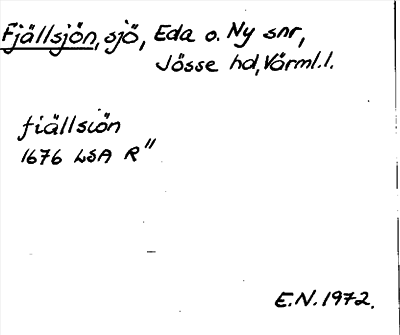 Fjällsjön, sjö, Eda o. Ny snr,
Jösse hd, Värml.l.
fiällsiön
1676 LSA R"
E.N. 1972.